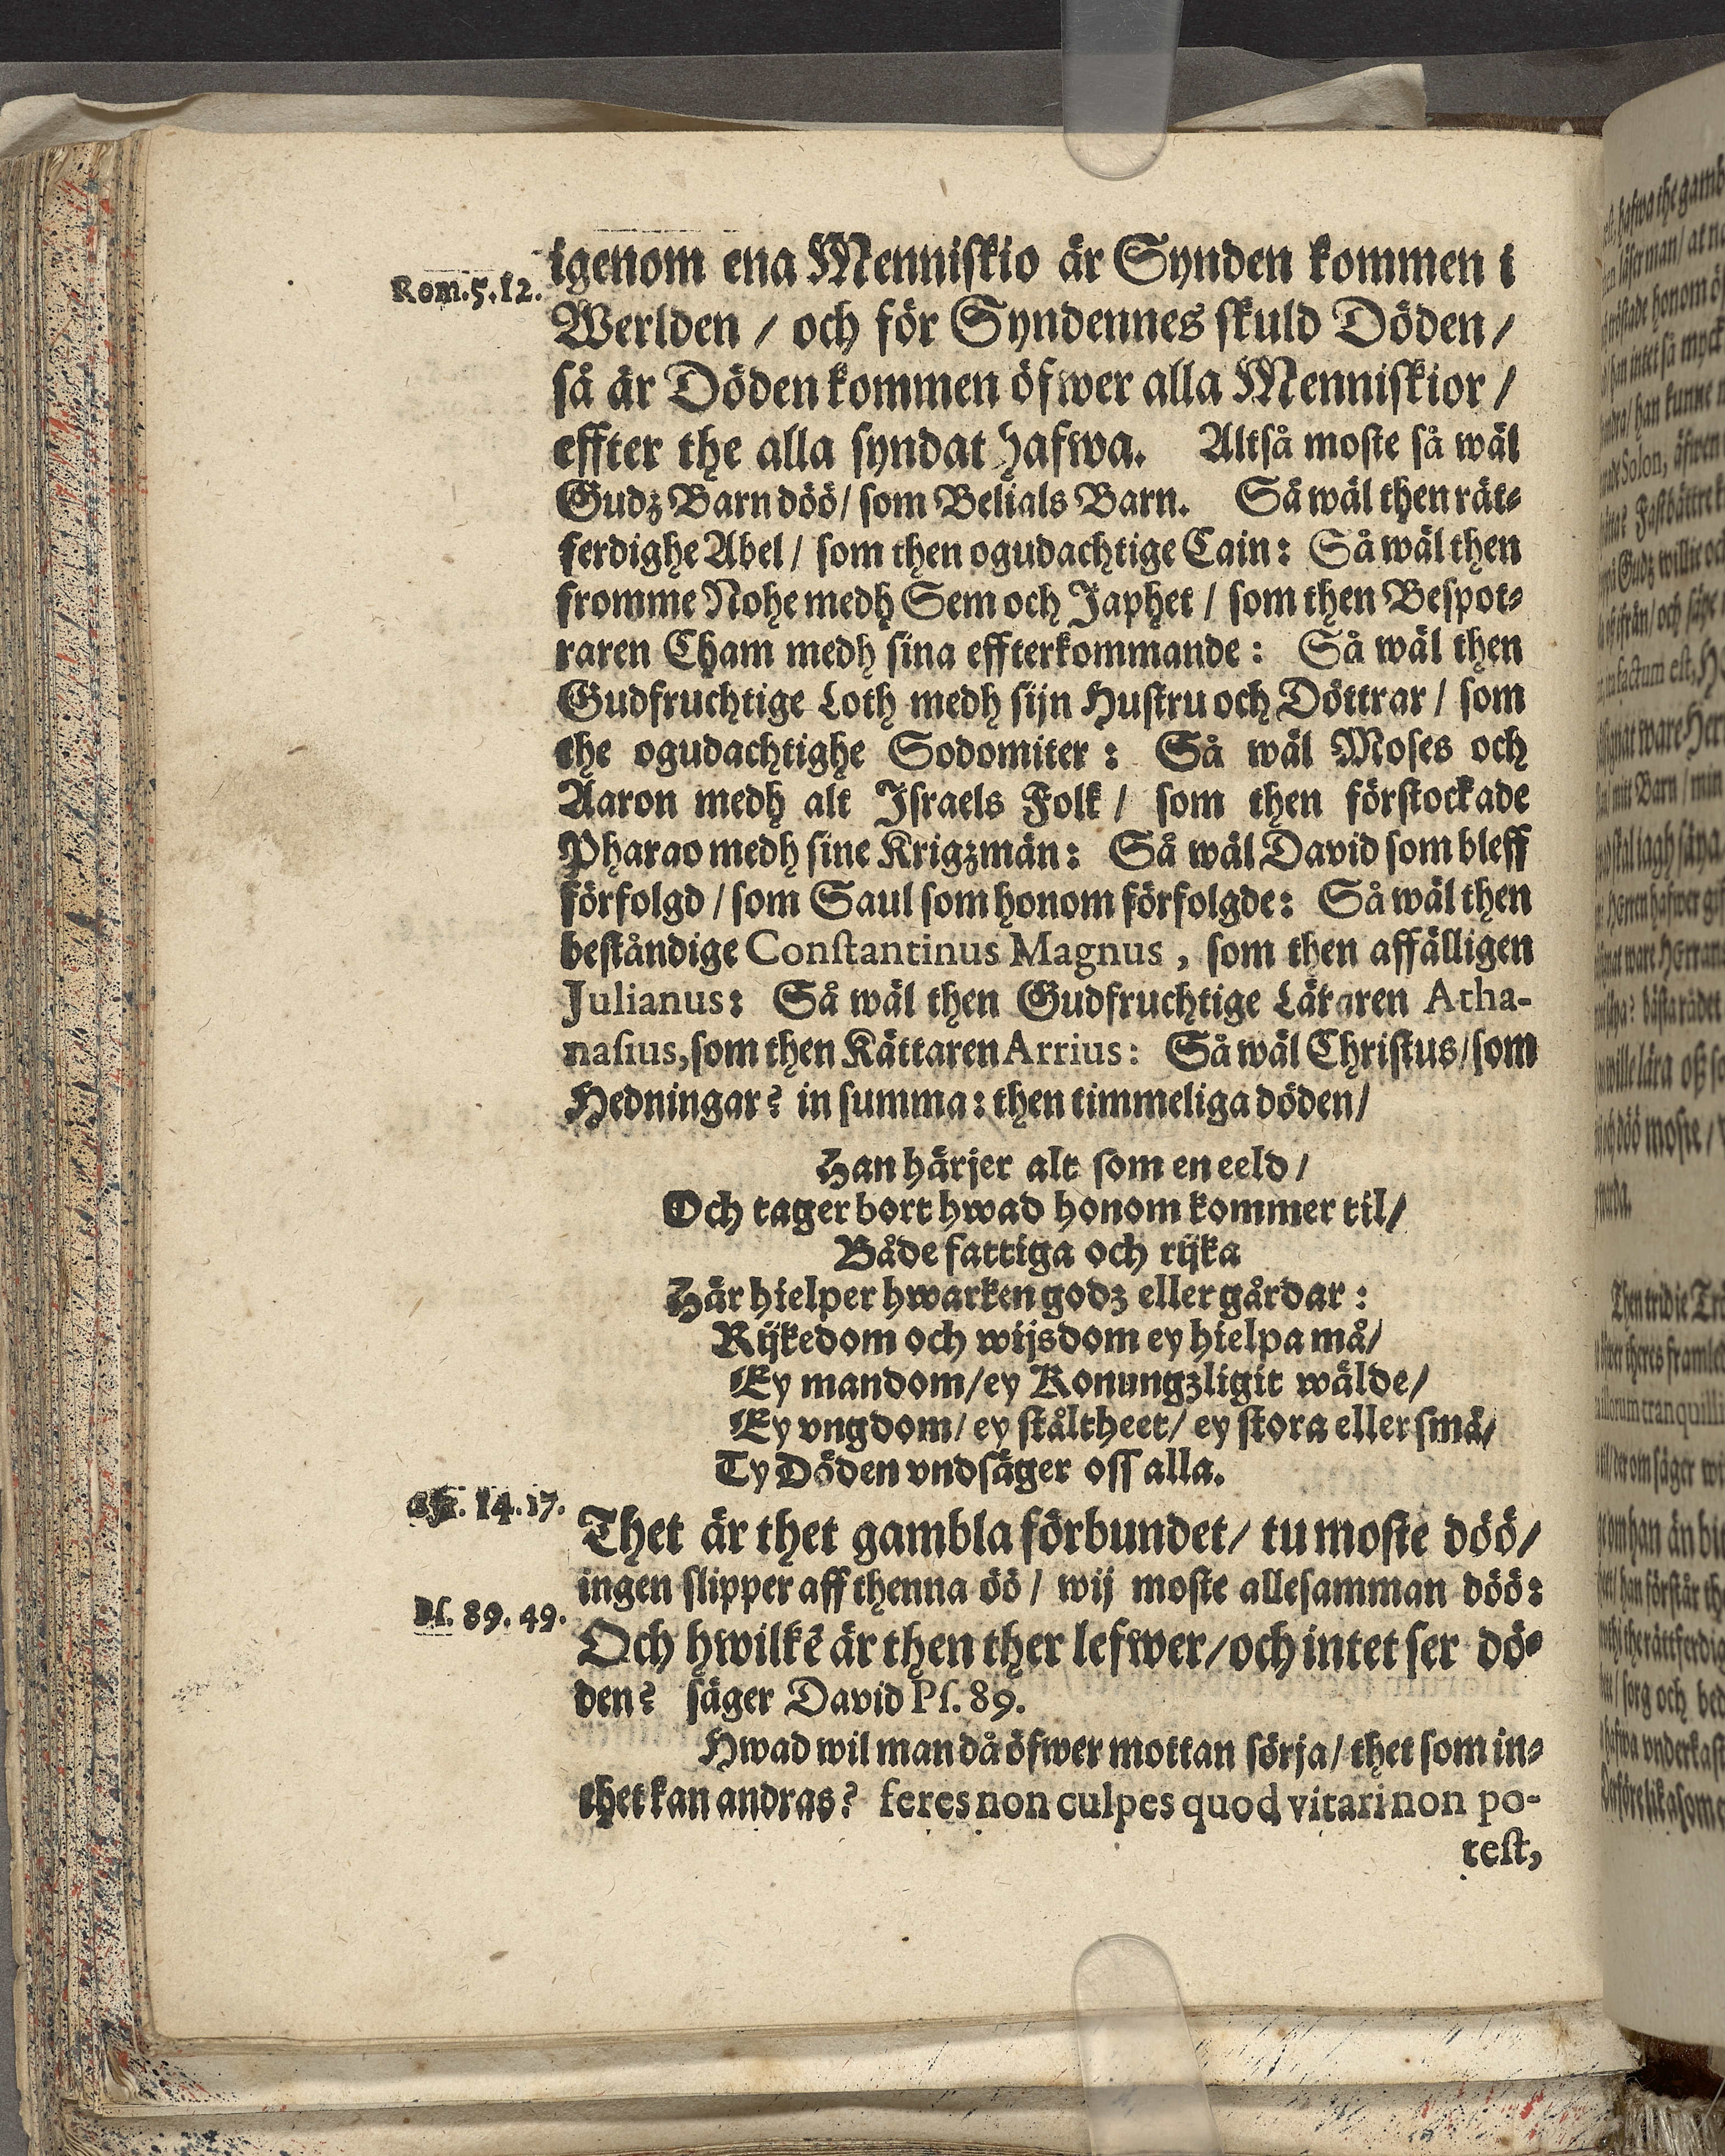 igenom ena Menniſkio är Synden kommen i
Rom. 5. 12.
Werlden / och för Syndennes ſkuld Döden /
ſå är Döden kommen öfwer alla Menniſkior /
effter the alla ſyndat hafwa. Altſå moſte ſå wäl
Gudz Barn döö / ſom Belials Barn. Så wäl then rät⸗
ferdighe Abel / ſom then ogudachtige Cain: Så wäl then
fromme Nohe medh Sem och Japhet / ſom then Beſpot⸗
raren Cham medh ſina effterkommande: Så wäl then
Gudfruchtige Loth medh ſijn Huſtru och Döttrar / ſom
the ogudachtighe Sodomiter: Så wäl Moſes och
Aaron medh alt Iſraels Folk / ſom then förſtockade
Pharao medh ſine Krigzmän: Så wäl David ſom bleff
förfolgd / ſom Saul ſom honom förfolgde: Så wäl then
beſtåndige Conſtantinus Magnus, ſom then affälligen
Julianus: Så wäl then Gudfruchtige Läraren Atha-
naſius, ſom then Kättaren Arrius: Så wäl Chriſtus / ſom
Hedningar? in ſumma: then timmeliga döden /
Han härjer alt ſom en eeld /
Och tager bort hwad honom kommer til /
Både fattiga och rijka
Här hielper hwarken godz eller gårdar:
Rijkedom och wijsdom ey hielpa må /
Ey mandom / ey Konungzligit wälde /
Ey vngdom / ey ſtåltheet / ey ſtora eller ſmå /
Ty Döden vndſäger oſſ alla.
14. 17.
Thet är thet gambla förbundet / tu moſte döö /
ingen ſlipper aff thenna öö / wij moſte alleſamman döö:
Pſ. 89. 49.
Och hwilkē är then ther lefwer / och intet ſer dö⸗
den? ſäger David Pſ. 89.
Hwad wil man då öfwer mottan ſörja / thet ſom in⸗
thet kan andras? feres non culpes quod vitari non po-
teſt,